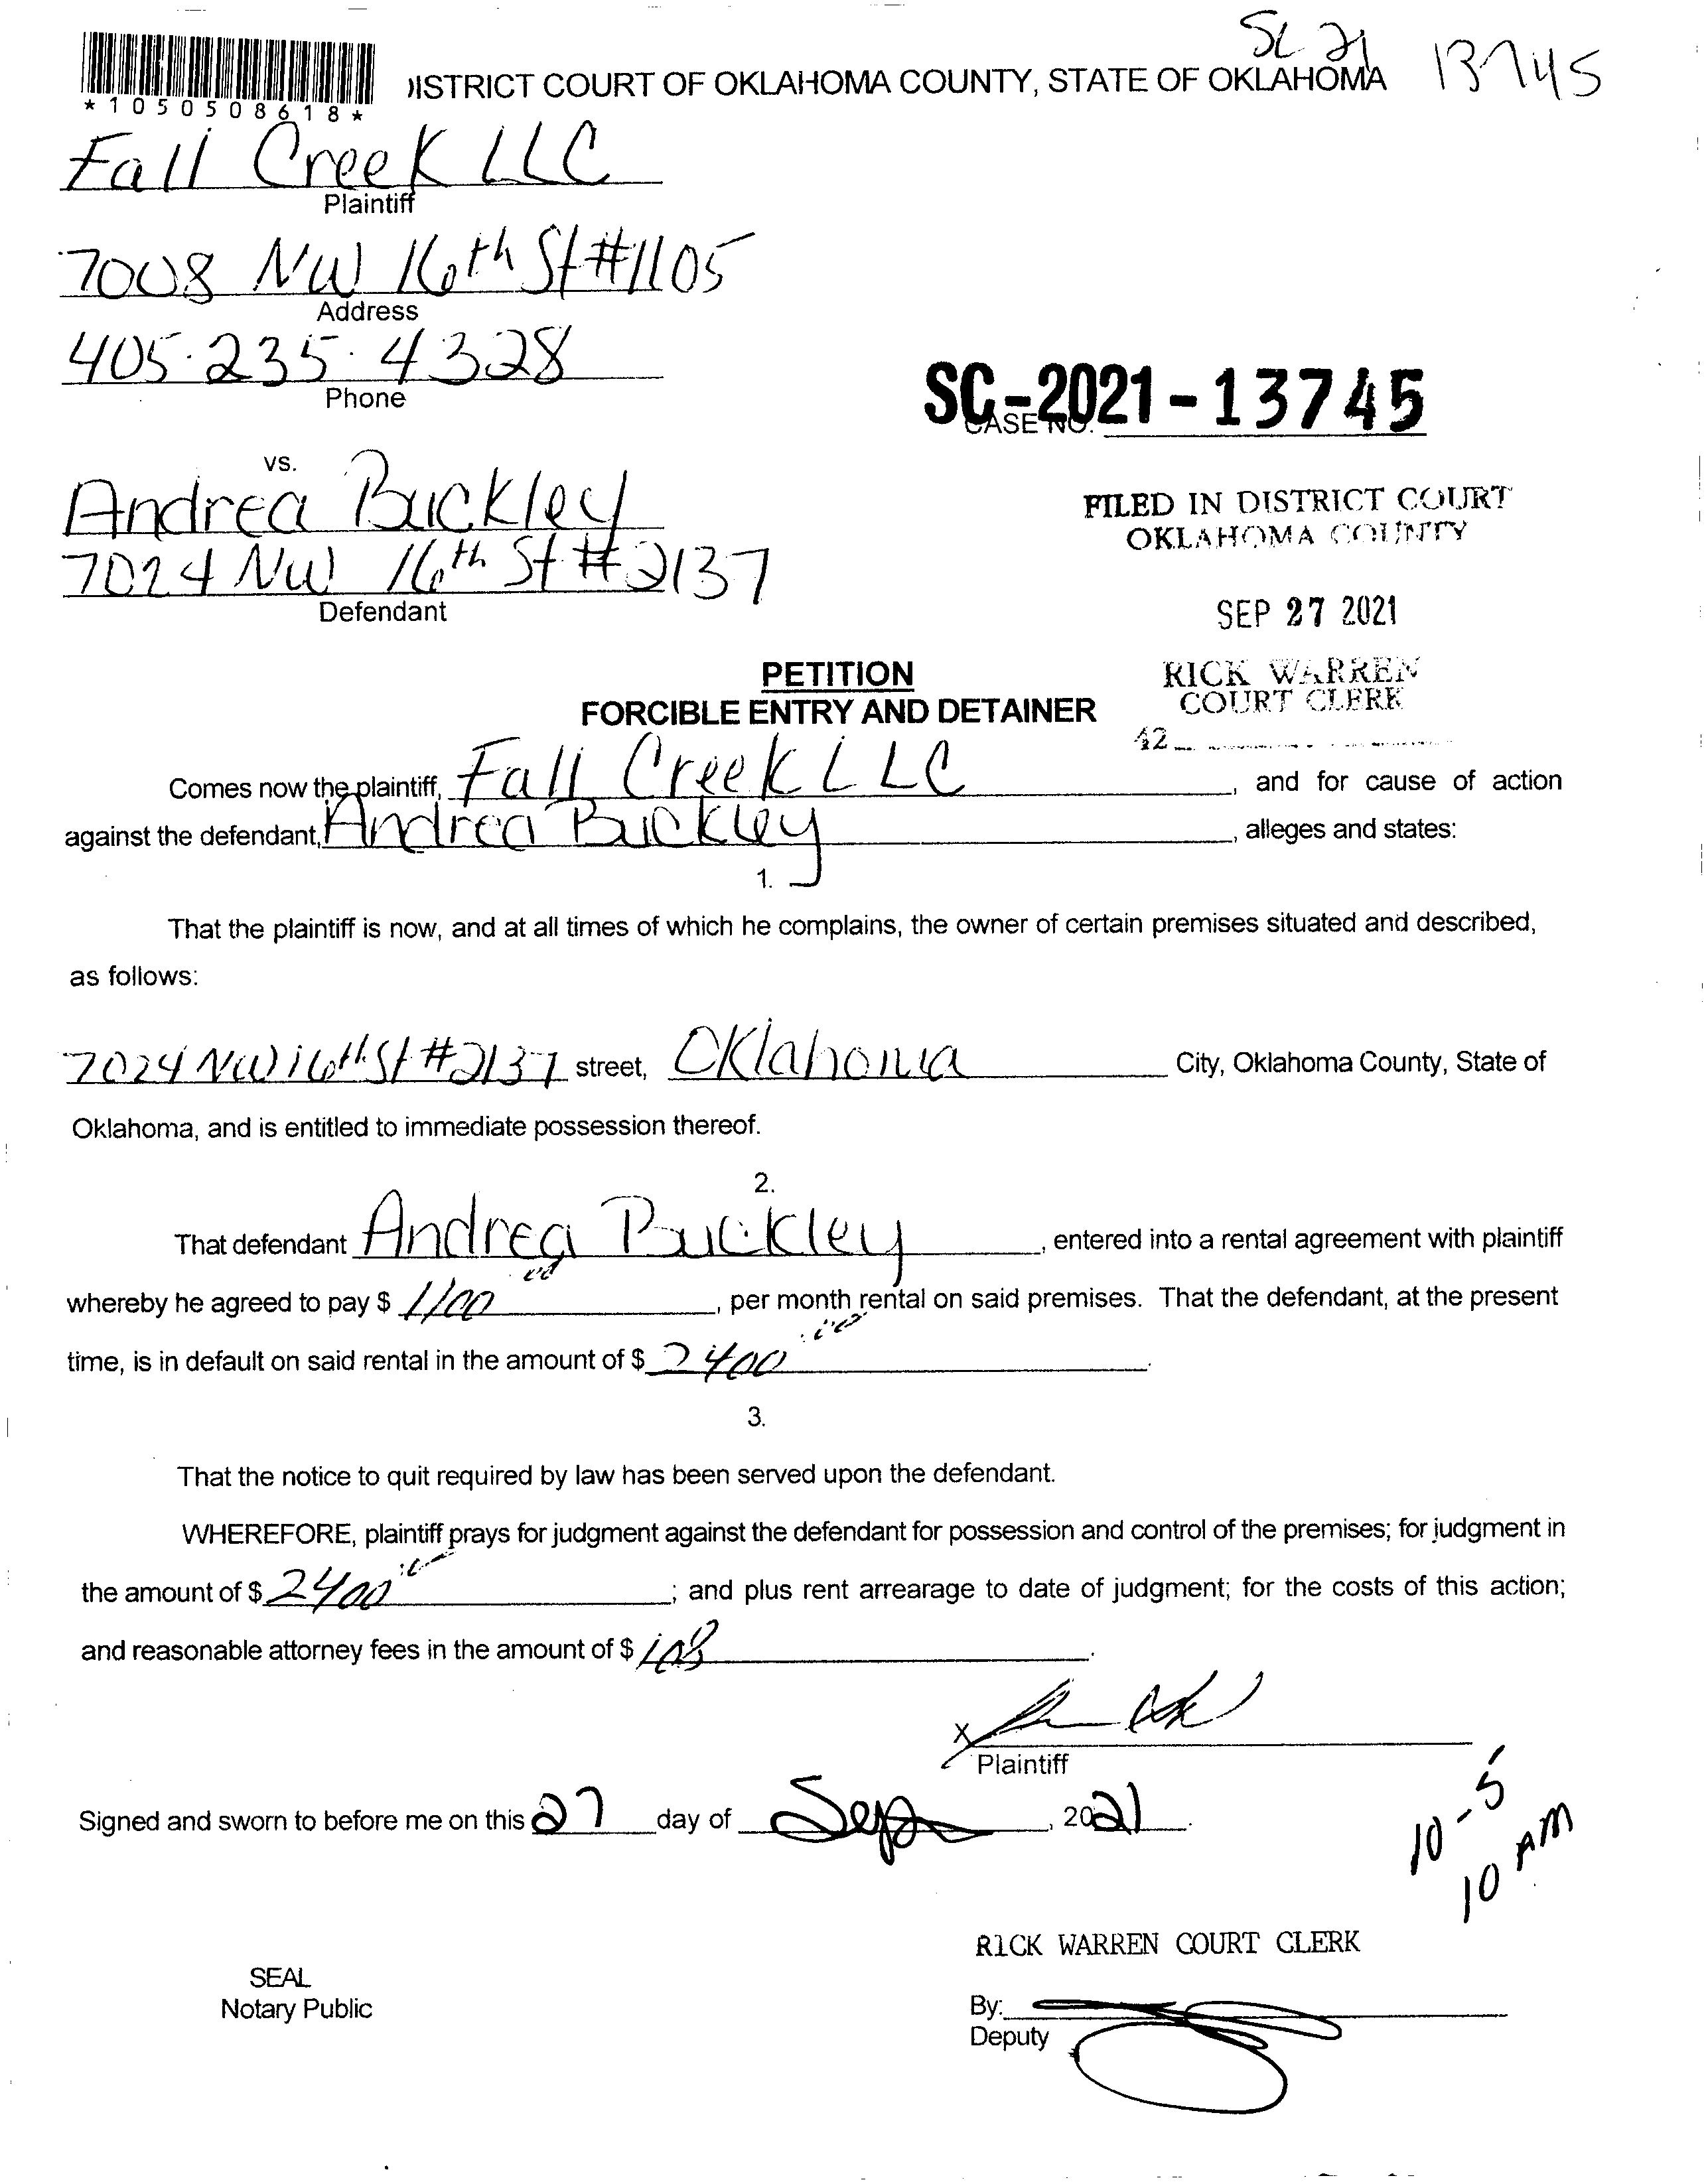 SC 21 13745
*1050508618*
DISTRICT COURT OF OKLAHOMA COUNTY, STATE OF OKLAHOMA
Fall Creek LLC
Plaintiff
7008 NW 16th St #1105
Address
405.235.4328
Phone
SC-2021-13745
CASE NO.
vs.
Andrea Buckley
7024 NW 16th St #2137
Defendant
FILED IN DISTRICT COURT
OKLAHOMA COUNTY
SEP 27 2021
RICK WARREN
COURT CLERK
42
PETITION
FORCIBLE ENTRY AND DETAINER
Comes now the plaintiff, Fall Creek LLC, and for cause of action
against the defendant, Andrea Buckley, alleges and states:
1.
That the plaintiff is now, and at all times of which he complains, the owner of certain premises situated and described,
as follows:
7024 NW 16th St #2137 street, Oklahoma City, Oklahoma County, State of
Oklahoma, and is entitled to immediate possession thereof.
2.
That defendant Andrea Buckley, entered into a rental agreement with plaintiff
whereby he agreed to pay $ 1100, per month rental on said premises. That the defendant, at the present
time, is in default on said rental in the amount of $ 2400.
3.
That the notice to quit required by law has been served upon the defendant.
WHEREFORE, plaintiff prays for judgment against the defendant for possession and control of the premises; for judgment in
the amount of $ 2400; and plus rent arrearage to date of judgment; for the costs of this action;
and reasonable attorney fees in the amount of $ 108.
X
Plaintiff
Signed and sworn to before me on this 27 day of Sep, 2021.
10-5
10 AM
RICK WARREN COURT CLERK
SEAL
Notary Public
By:
Deputy